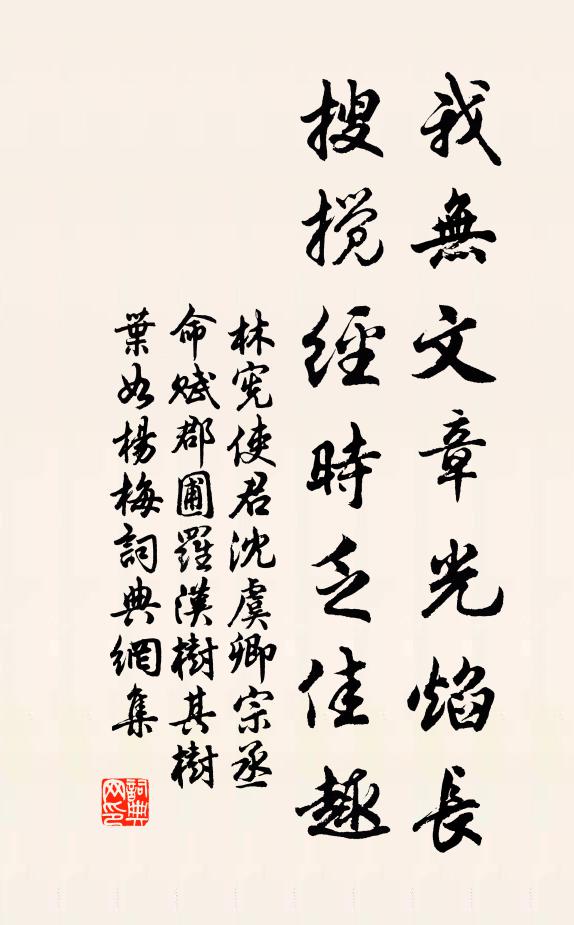 我無文章光焰長
搜攪經時乏佳趣
林憲使君沈虞卿宗丞
命賦郡圃羅漢樹其樹
葉如楊梅詞典網集
詞典
网印